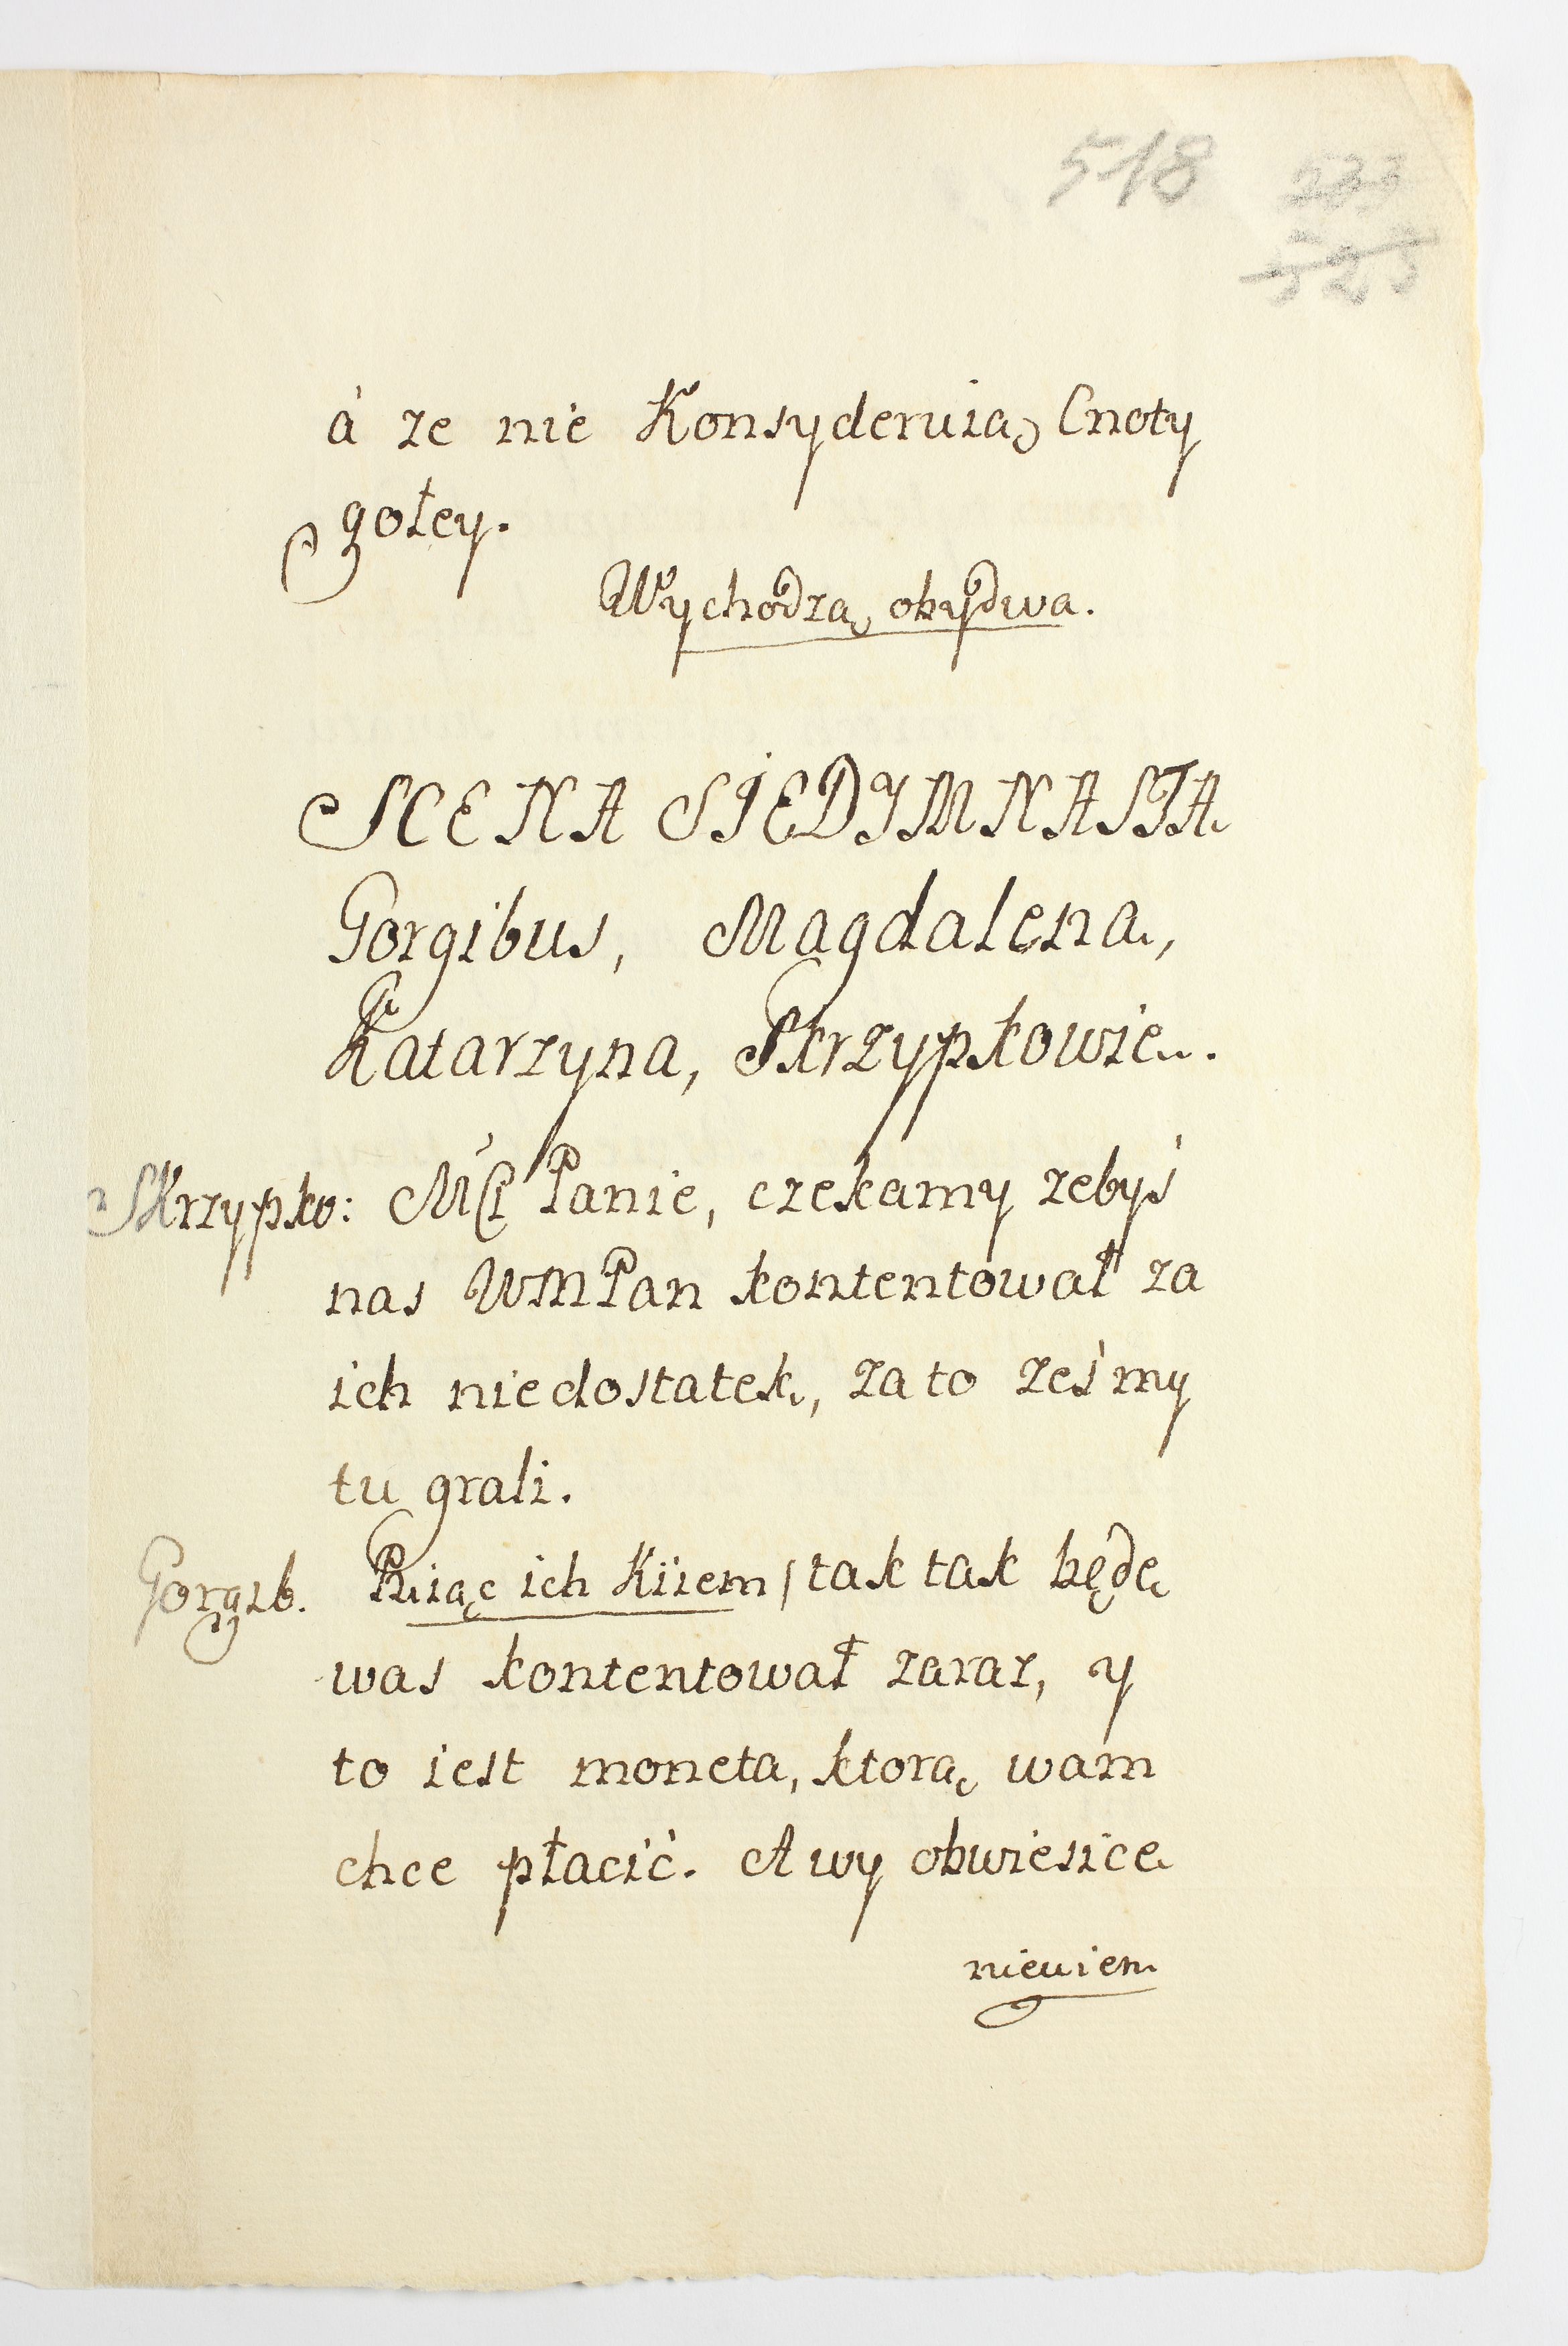 518 533
523
à ze nie Konsyderuią Cnoty
gołey.
Wychodzą obydwa.
SCENA SIEDYMNASTA
Gorgibus, Magdalena,
Katarzyna, Skrzypkowie.
Skrzypko: Mći Panie, czekamy zebyś
nas WMPan kontentował za
ich niedostatek, za to ześmy
tu grali.
Gorgib. Biiąc ich Kiiem / tak tak będę
was kontentował zaraz, y
to iest moneta, ktorą wam
chce płacić. A wy obwiesice
niewiem